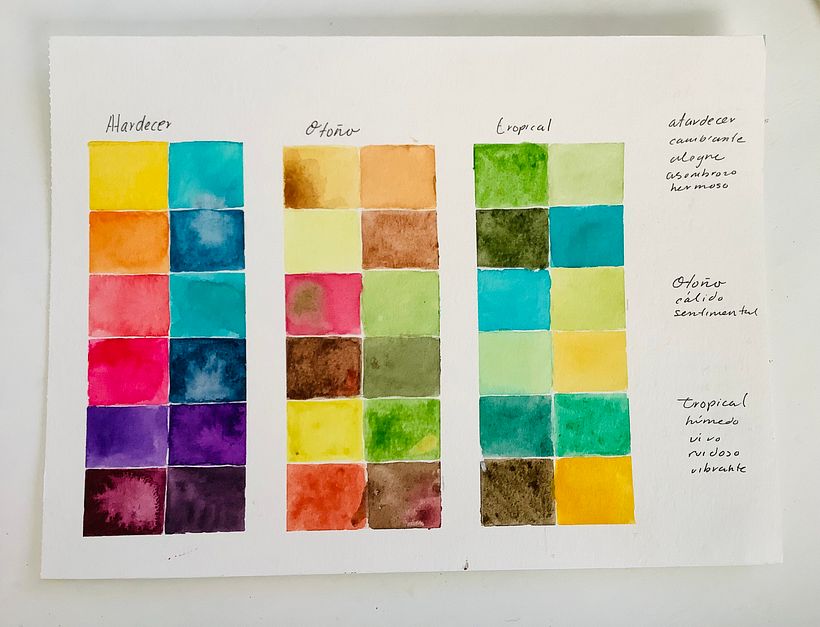 Atardecer
Otoño
tropical
atardecer
cambiante
alegre
asombroso
hermoso
Otoño
cálido
sentimental
tropical
húmedo
vivo
ruidoso
vibrante